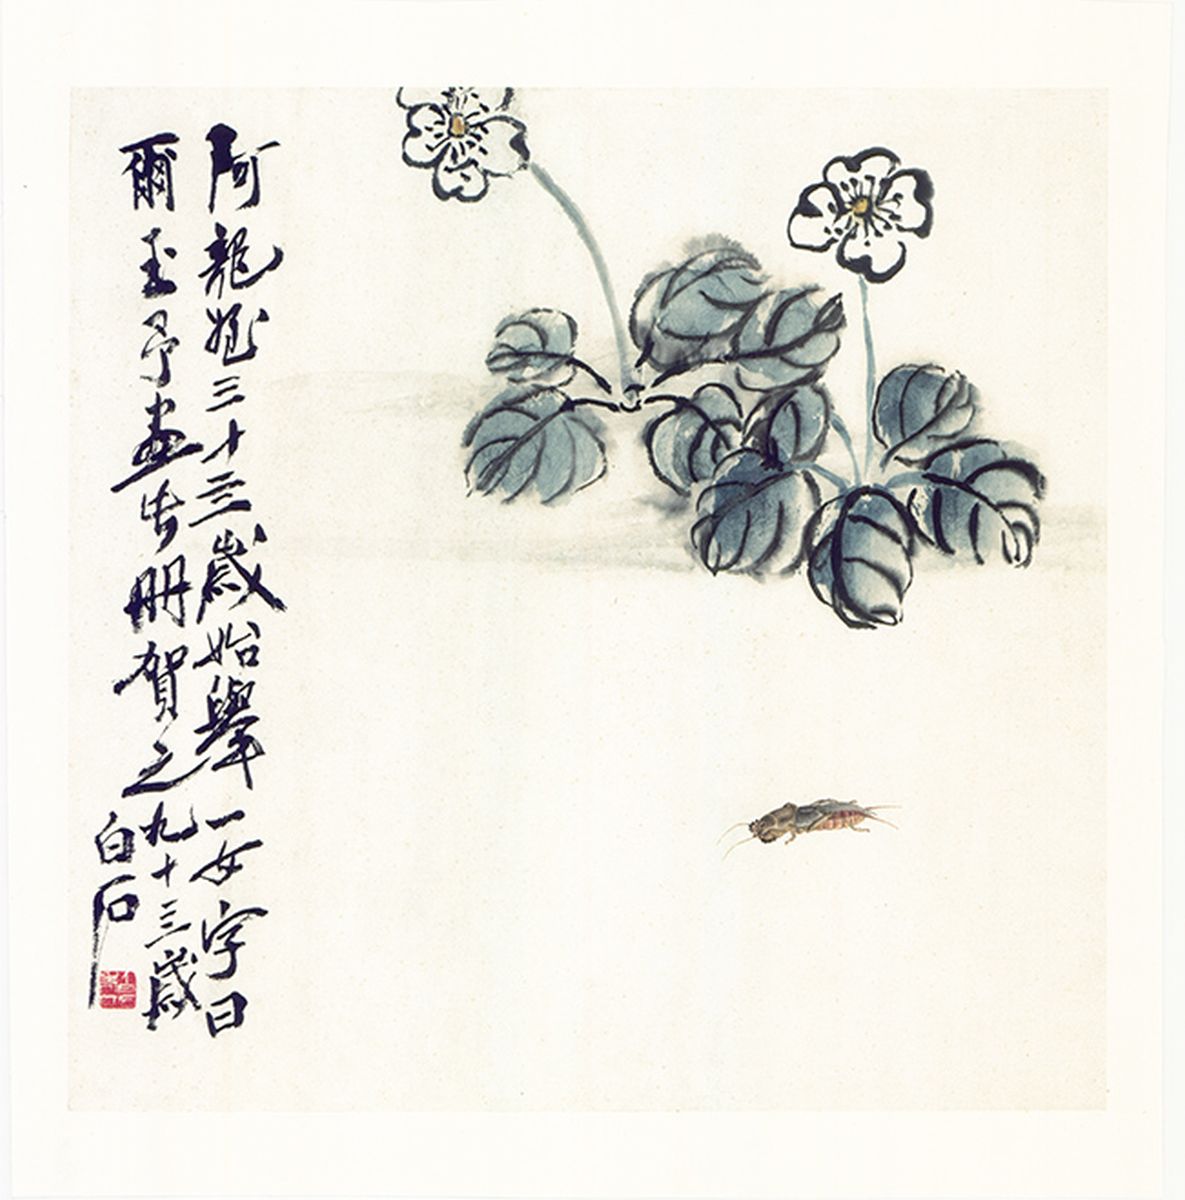 阿龍姪三十三歲始舉一女字曰
爾玉予畫此冊賀之九十三歲
白石